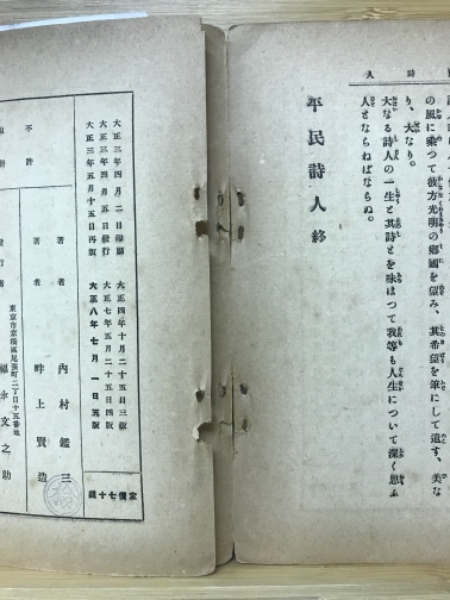 詩人
の風に乘つて彼方光明の鄕國を望み、其希望を筆にして遺す、美な
り、大なり。
大なる詩人の一生と其詩とを味はつて我等も人生について深く思ふ
人とならねばならぬ。
平民詩人終
大正三年四月二日印刷
大正三年四月五日發行
大正三年五月十五日再版
大正四年十月二十五日三版
大正七年五月二十五日四版
大正八年七月一日五版
定價七十錢
不許
著者 內村鑑三
著者 畔上賢造
東京市京橋區尾張町二丁目十五番地
發行者 福永文之助